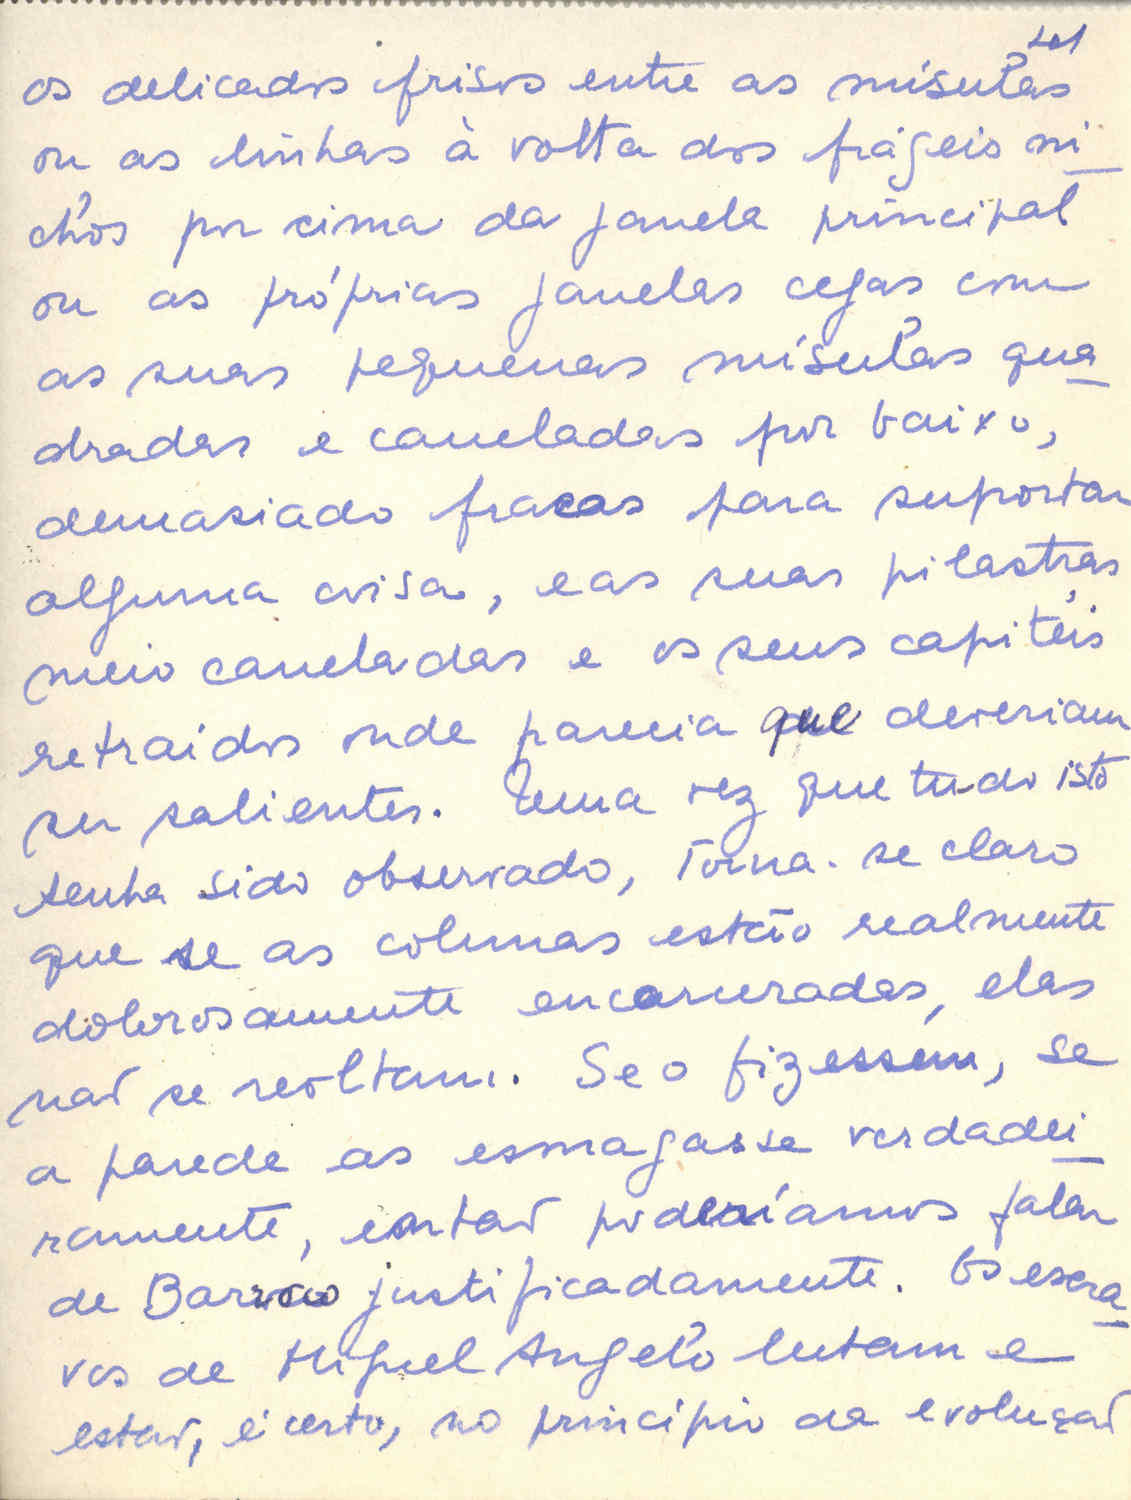 os delicados frisos entre as mísulas
ou as linhas à volta dos frágeis ni
chos por cima da janela principal
ou as próprias janelas cegas com
as suas pequenas mísulas qua
dradas e caneladas por baixo,
demasiado fracas para suportar
alguma coisa, e as suas pilastras
meio caneladas e os seus capitéis
retraídos onde parecia que deveriam
ser salientes. Uma vez que tudo isto
tenha sido observado, torna-se claro
que se as colunas estão realmente
dolorosamente encarceradas, elas
não se revoltam. Se o fizessem, se
a parede as esmagasse verdadei
ramente, então poderíamos falar
de Barroco justificadamente. Os escra
vos de Miguel Angelo lutam e
estão, é certo, no princípio da evolução